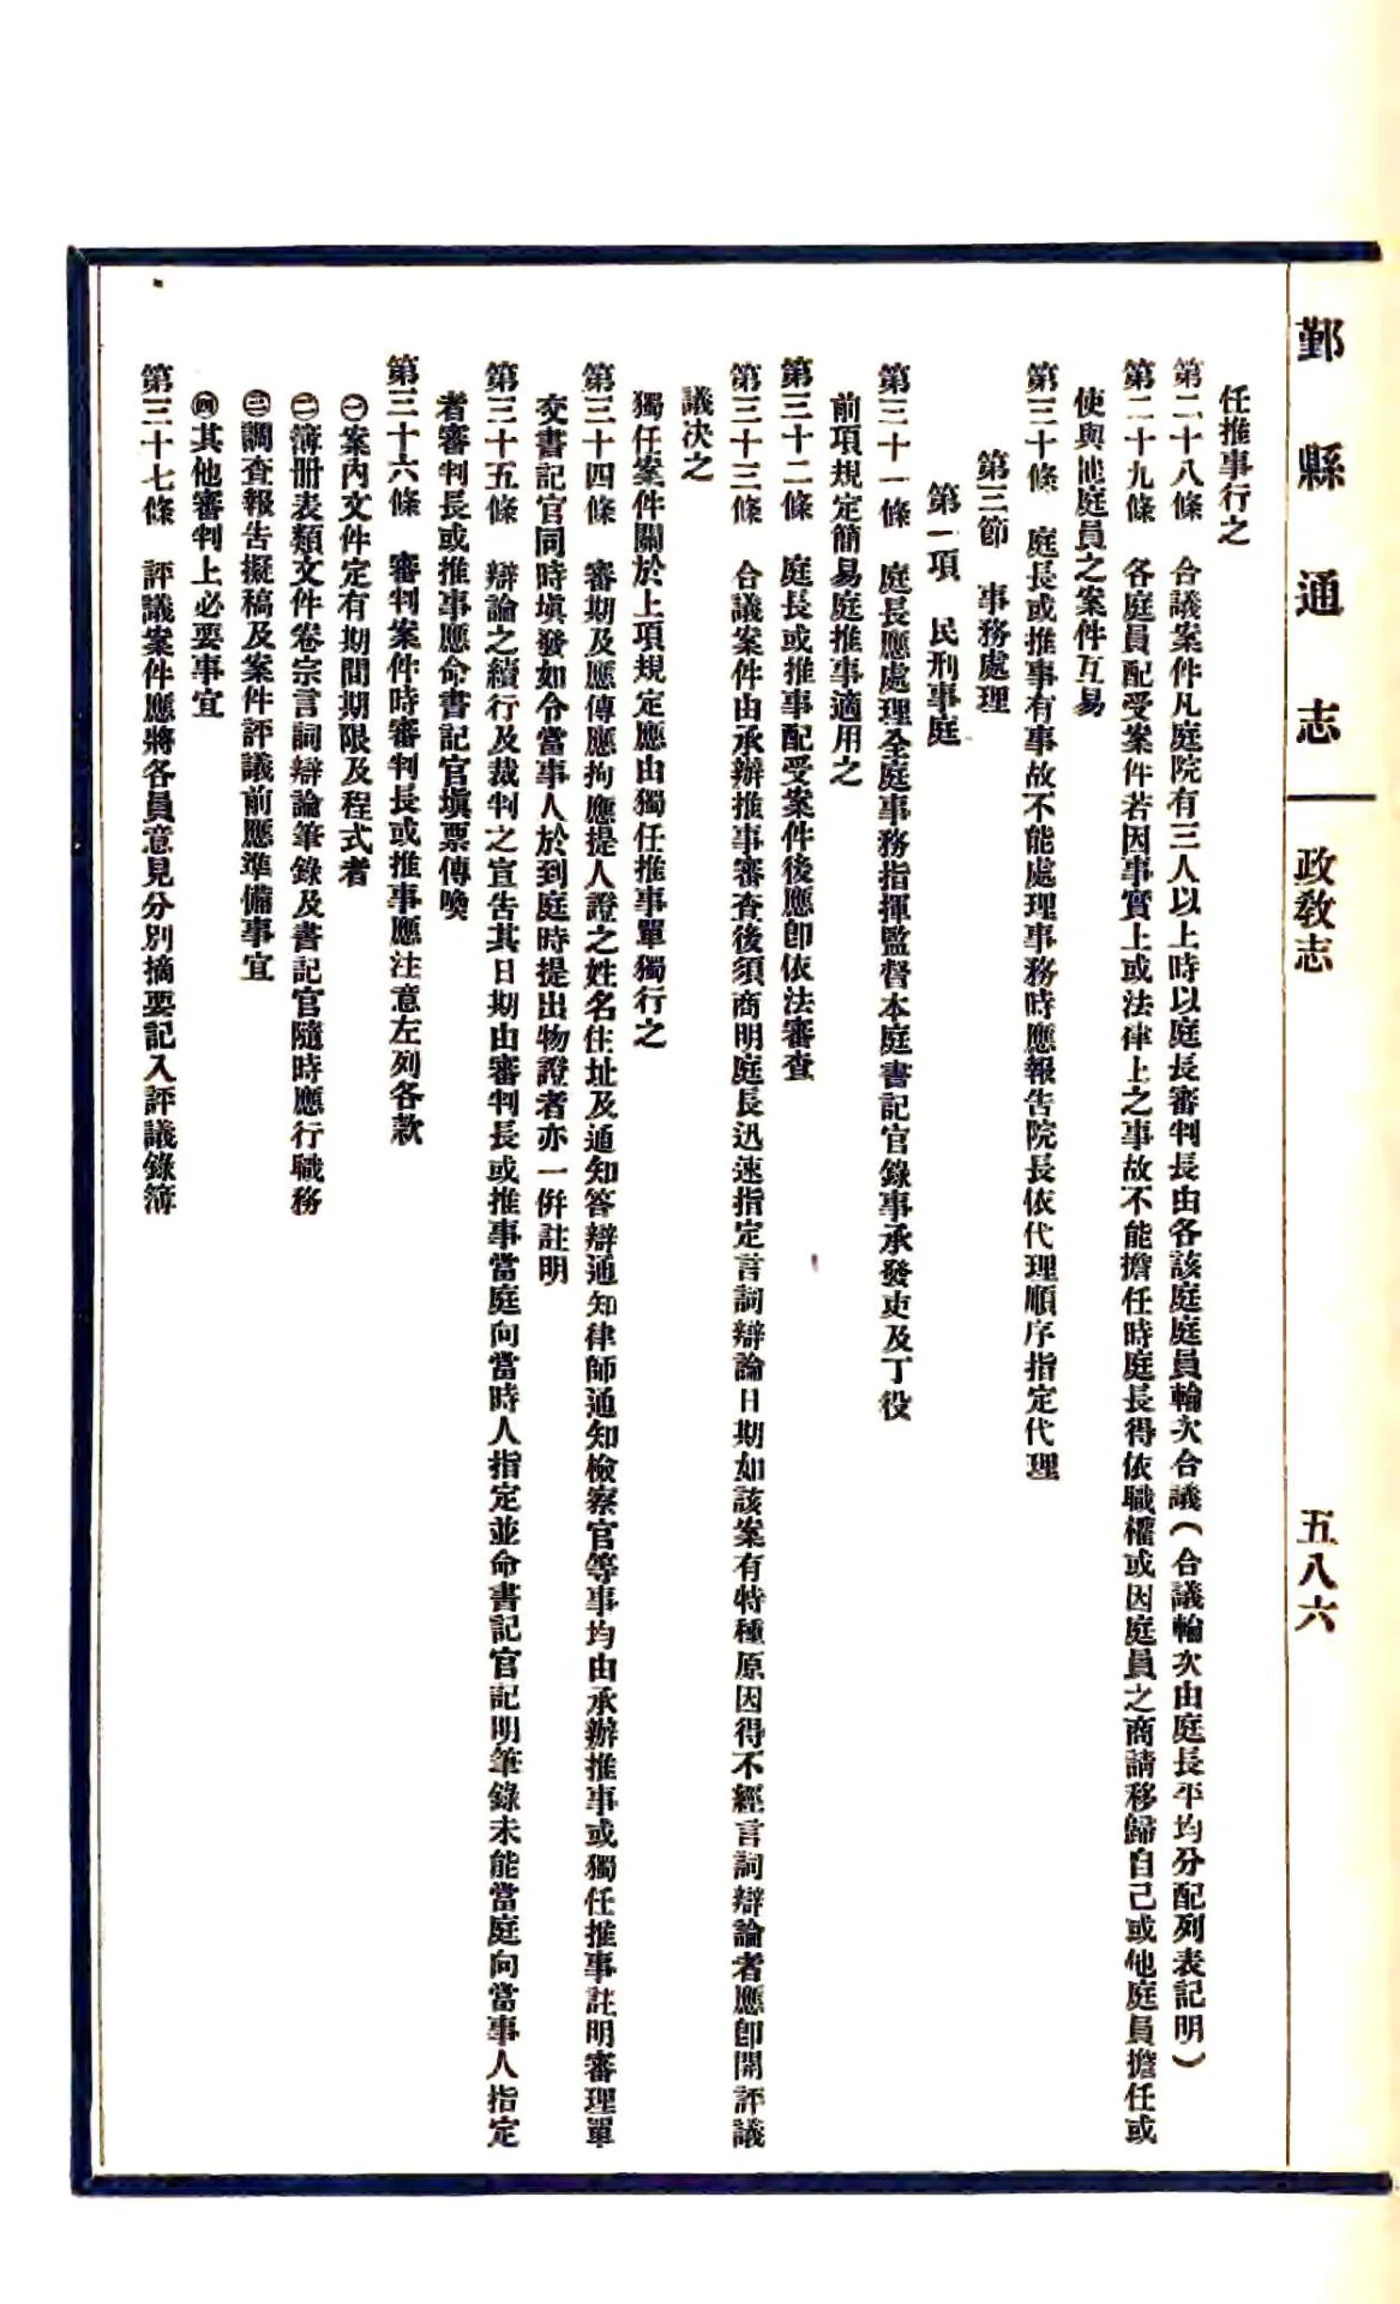 鄞縣通志 政教志 五八六
任推事行之
第二十八條 合議案件凡庭院有三人以上時以庭長審判長由各該庭庭員輪次合議(合議輪次由庭長平均分配列表記明)
第二十九條 各庭員配受案件若因事實上或法律上之事故不能擔任時庭長得依職權或因庭員之商請移歸自己或他庭員擔任或
使與他庭員之案件互易
第三十條 庭長或推事有事故不能處理事務時應報告院長依代理順序指定代理
第三節 事務處理
第一項 民刑事庭
第三十一條 庭長應處理全庭事務指揮監督本庭書記官錄事承發吏及丁役
前項規定簡易庭推事適用之
第三十二條 庭長或推事配受案件後應卽依法審查
第三十三條 合議案件由承辦推事審查後須商明庭長迅速指定言詞辯論日期如該案有特種原因得不經言詞辯論者應卽開評議
議決之
獨任案件關於上項規定應由獨任推事單獨行之
第三十四條 審期及應傳應拘應提人證之姓名住址及通知答辯通知律師通知檢察官等事均由承辦推事或獨任推事註明審理單
交書記官同時塡發如令當事人於到庭時提出物證者亦一倂註明
第三十五條 辯論之續行及裁判之宣告其日期由審判長或推事當庭向當時人指定並命書記官記明筆錄未能當庭向當事人指定
者審判長或推事應命書記官塡票傳喚
第三十六條 審判案件時審判長或推事應注意左列各款
㊀案內文件定有期間期限及程式者
㊁簿册表類文件卷宗言詞辯論筆錄及書記官隨時應行職務
㊂調查報告擬稿及案件評議前應準備事宜
㊃其他審判上必要事宜
第三十七條 評議案件應將各員意見分別摘要記入評議錄簿